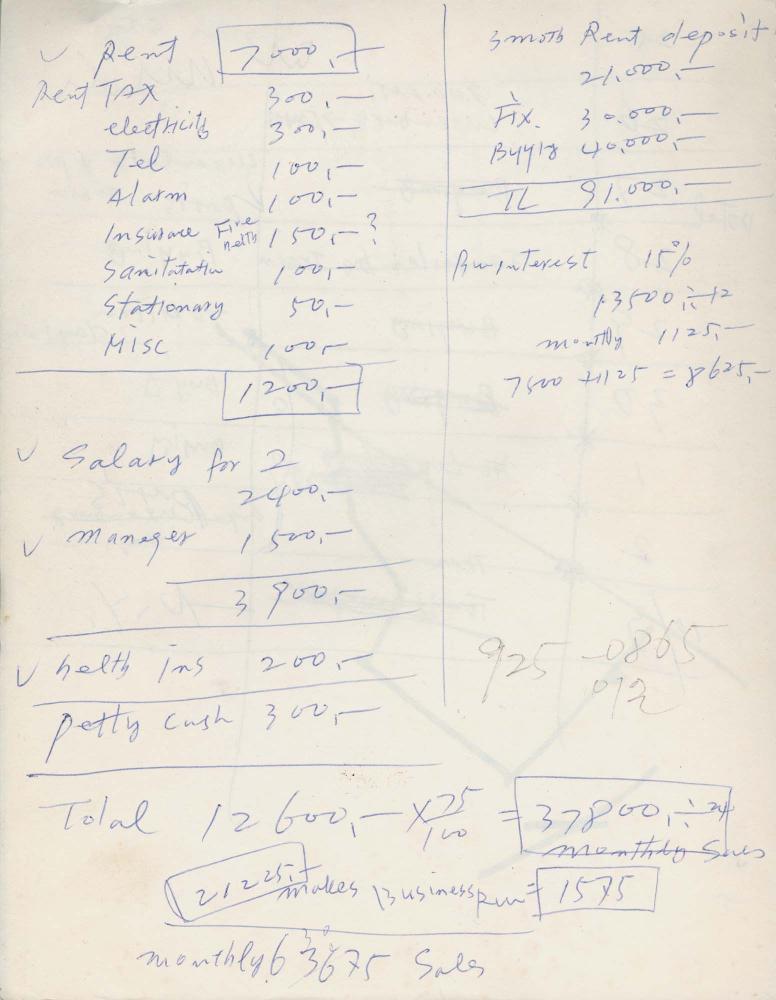 ✓ Rent 7000,—
Rent TAX 300,—
electricity 300,—
Tel 100,—
Alarm 100,—
Insurace Fire helth 150,— ?
Sanitatatiu 100,—
Stationary 50,—
Misc 100,—
1200,—
✓ Salary for 2
2400,—
✓ maneger 1500,—
3900,—
✓ helth ins 200,—
petty cash 300,—
Total 12600,— × 25/100 = 37800,÷24
monthly Sales
21225,— makes Business run = 1575
monthly 63675 Sales
3 moth Rent deposit
21.000,—
Fix. 30.000,—
40,000,—
TL 91.000,—
interest 15%
13500 ÷ 12
monthly 1125,—
7500 + 1125 = 8625,—
925-0865
012